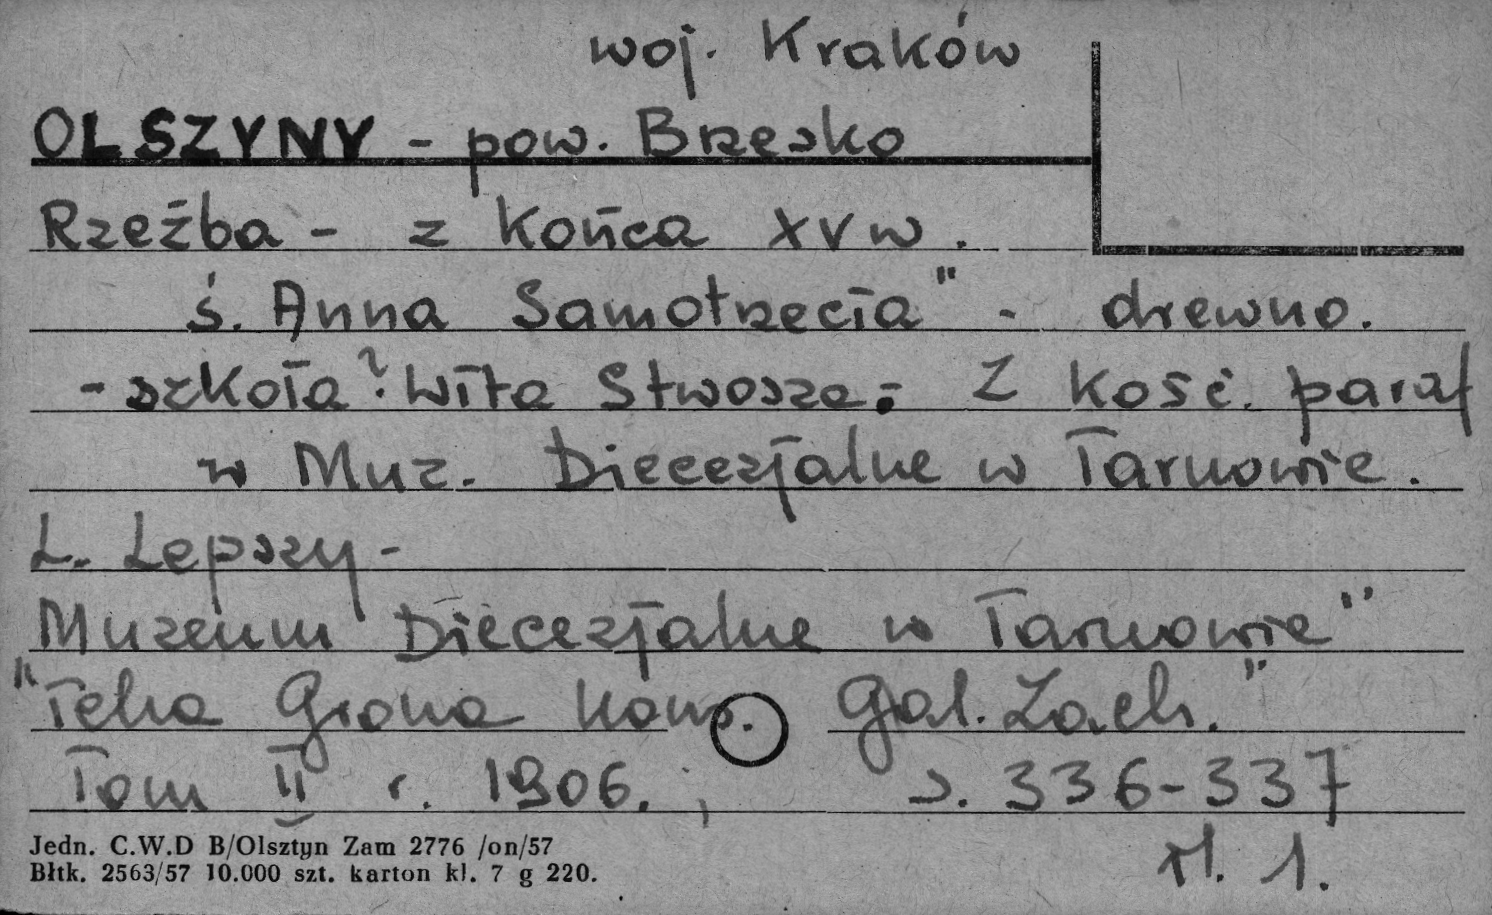 woj. Kraków
OLSZYNY - pow. Brzesko
Rzeźba - z końca XV w.
ś. Anna Samotrzecia" - drewno.
- szkoła? Wita Stwosza. - Z kość. paraf
w Muz. Diecezjalne w Tarnowie.
L. Lepszy -
Muzeum Diecezjalne w Tarnowie"
"Teka Grona Kons. Gal. Zach."
Tom II r. 1906. ; s. 336-337
il. 1.
Jedn. C.W.D B/Olsztyn Zam 2776 /on/57
Błtk. 2563/57 10.000 szt. karton kl. 7 g 220.